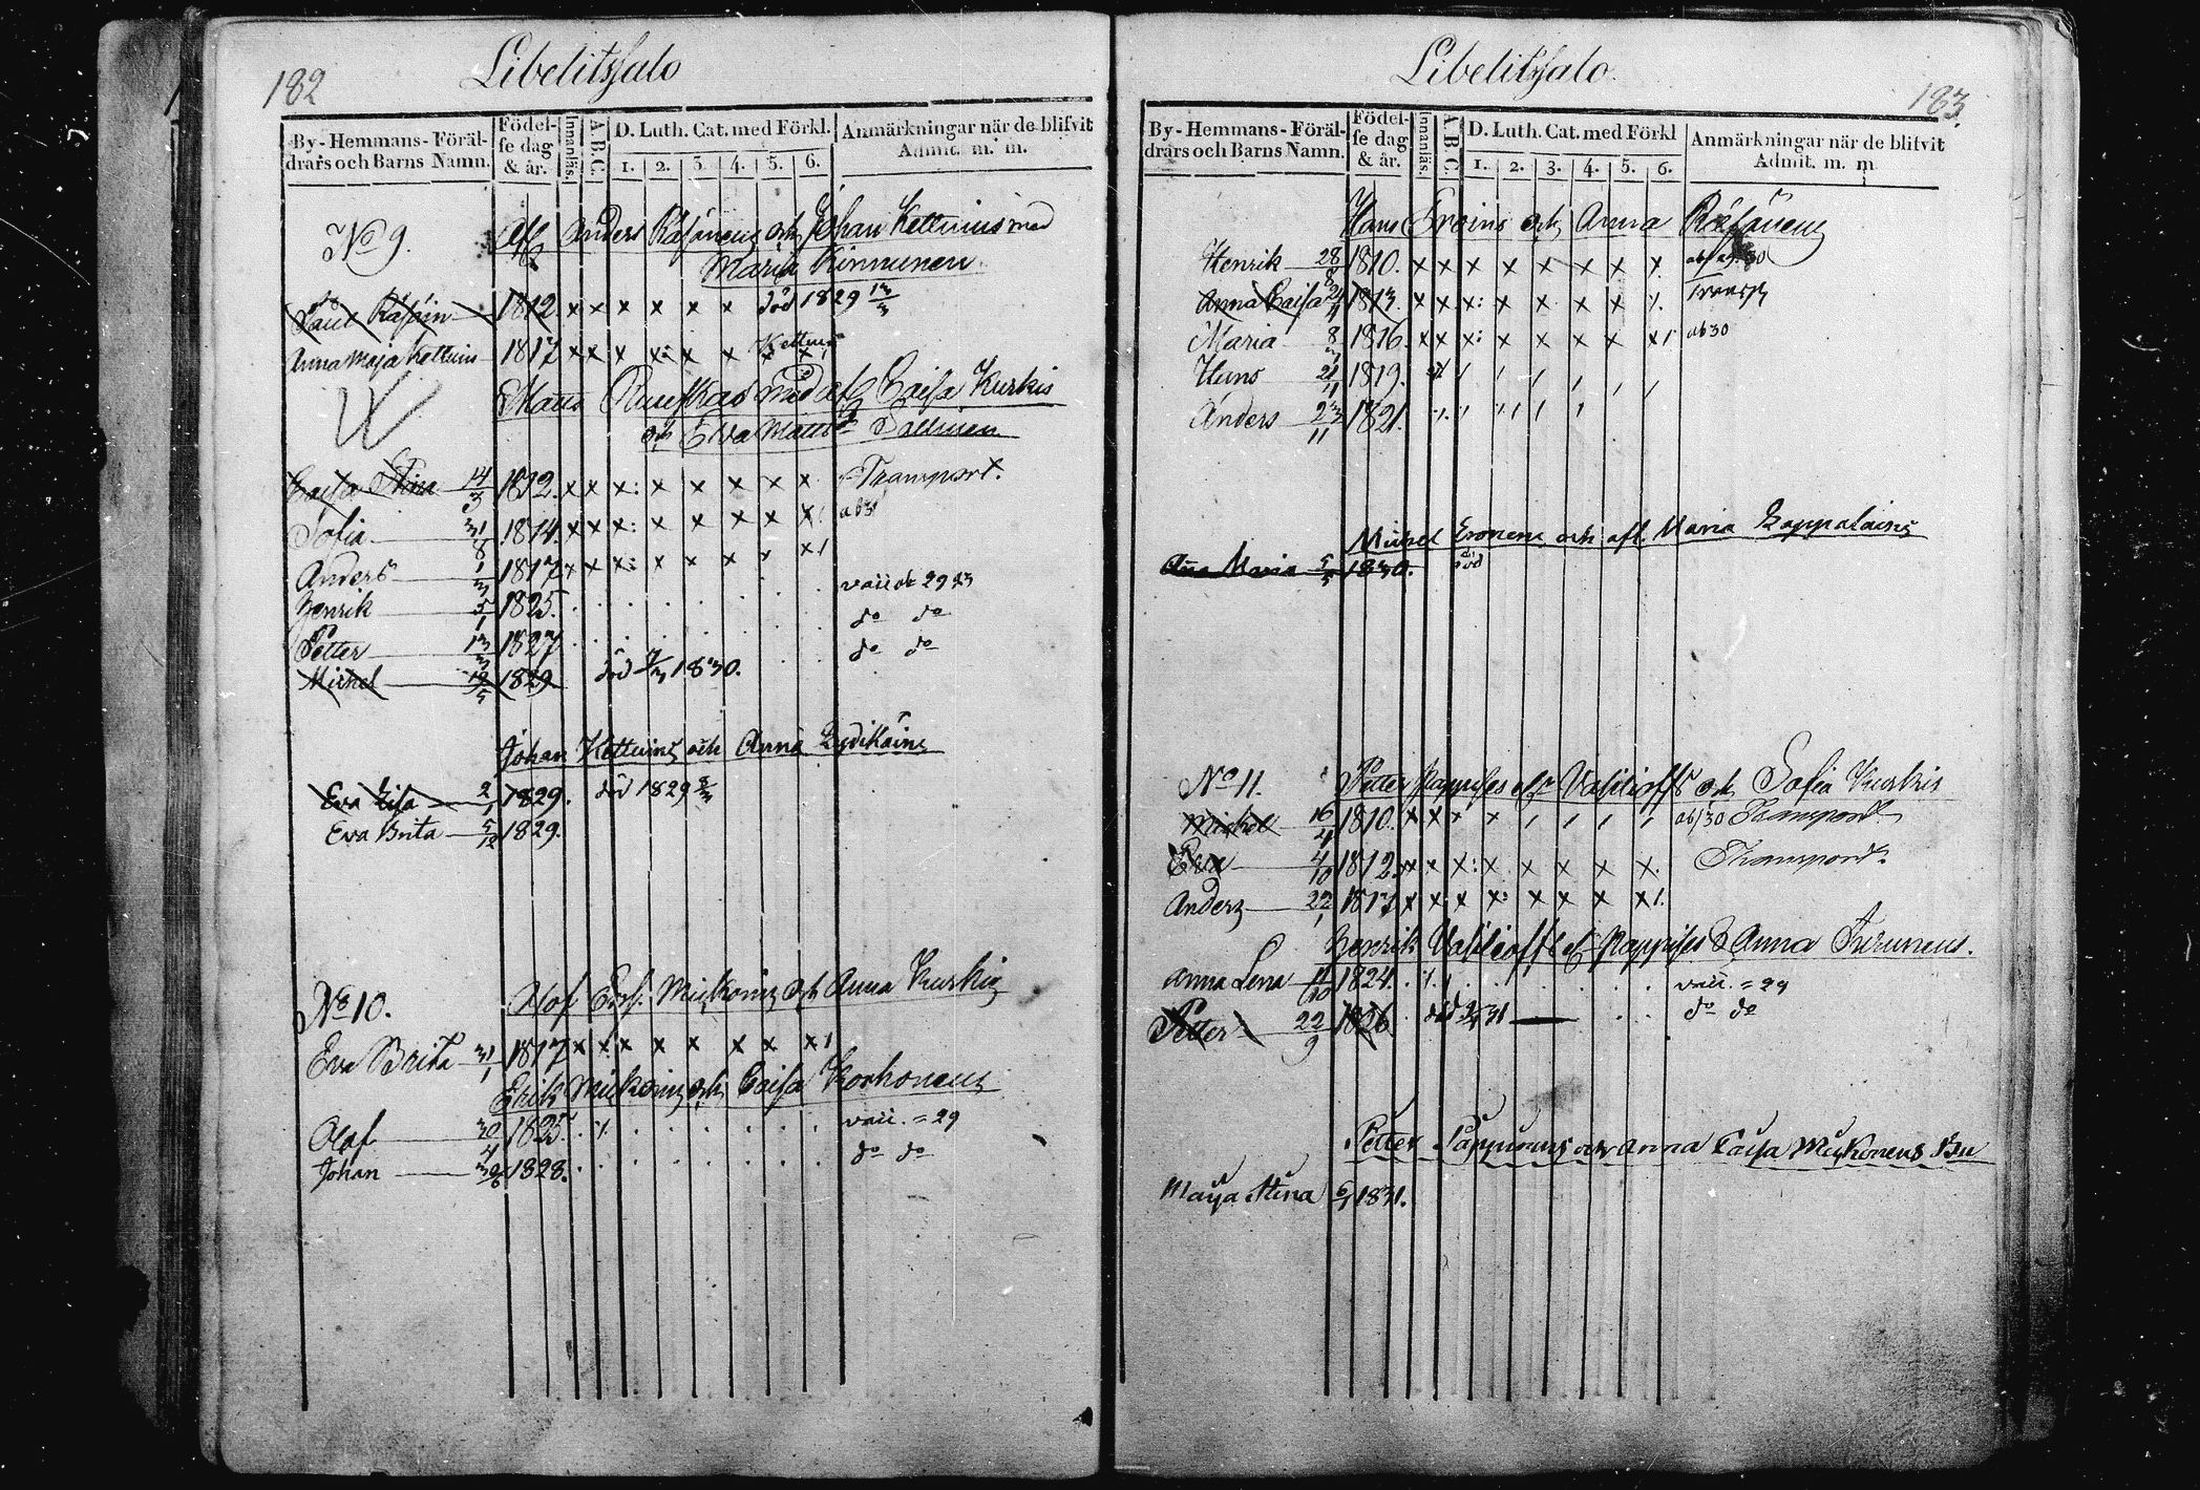 182
Libelitsalo
By-Hemmans-Föräl-
drars och Barns Namn.
Födel-
se dag
& år.
Innanläs.
A.B.C.
D. Luth. Cat. med Förkl.
1. 2. 3. 4. 5. 6.
Anmärkningar när de blifvit
Admit. m. m.
No 9. Afl. Anders Räsänens och Johan Kettuins med
Maria Kinnunen
Paul Räsäin 1812 x x x x x x död 1829 13/3
Kettuin
Anna Maja Kettuin 1817 x x x x: x x x x
Matts Ruuskas med afl. Caisa Kurkis
och Eva Mattsdr Sallinen
Caisa Stina 14/3 1812. x x x: x x x x x Transport.
Sofia 31/8 1814. x x x: x x x x x ab 31
Anders 1/3 1817 x x x: x x x x x 1
Henrik 5/1 1825. vacc. 29
Petter 13/3 1827 do do
Michel 19/5 1829 död 1830. do do
Johan Kettuins och Anna
Eva Lisa 2/1 1829. död 1829 8/3
Eva Brita 5/12 1829.
No 10. Olof Ersf. Mickoins och Anna Kurkis
Eva Brita 31/1 1817 x x x x x x x x 1
Erik Mickoins och Caisa Korhonens
Olof 30/4 1825. vacc. = 29
Johan 1828. do do
Libelitsalo.
183.
By-Hemmans-Föräl-
drars och Barns Namn.
Födel-
se dag
& år.
Innanläs.
A.B.C.
D. Luth. Cat. med Förkl
1. 2. 3. 4. 5. 6.
Anmärkningar när de blifvit
Admit. m. m
Hans Eroins och Anna Räsänens
Henrik 28/8 1810. x x x x x x x x
Anna Caisa 1813. x x x: x x x x x Transp
Maria 8 1816. x x x: x x x x x 1 ab 30
Hans 21/11 1819.
Anders 23/11 1821.
Michel Eronens och afl. Maria Lappalains
Ana Maria 5/5 1830. död
No 11. Petter Pappises eller Vasilioffs och Sofia Kurkis
Michel 16/4 1810. x x x x ab/30 Transport
Eva 4/10 1812. x x x: x x x x x Transport.
Anders 22/1 1817 x x x x: x x x x 1.
Henrik Vasilioffs el. Pappises & Anna Turunens.
Anna Lena 11/10 1824. vacc. = 29
Petter 22/9 1826 död 31 do do
Petter Pappinens och Anna Caisa Mickonens
Maija Stina 1831.